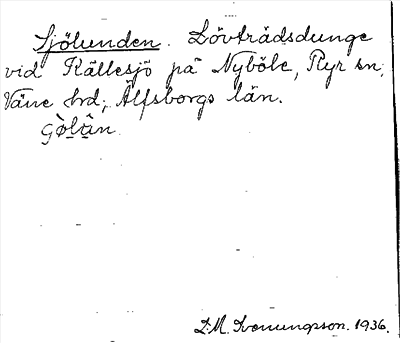 Sjölunden. Lövträdsdunge
vid Källesjö på Nyböle, Ryr sn,
Väne hd, Älfsborgs län.
D.M. 1936.